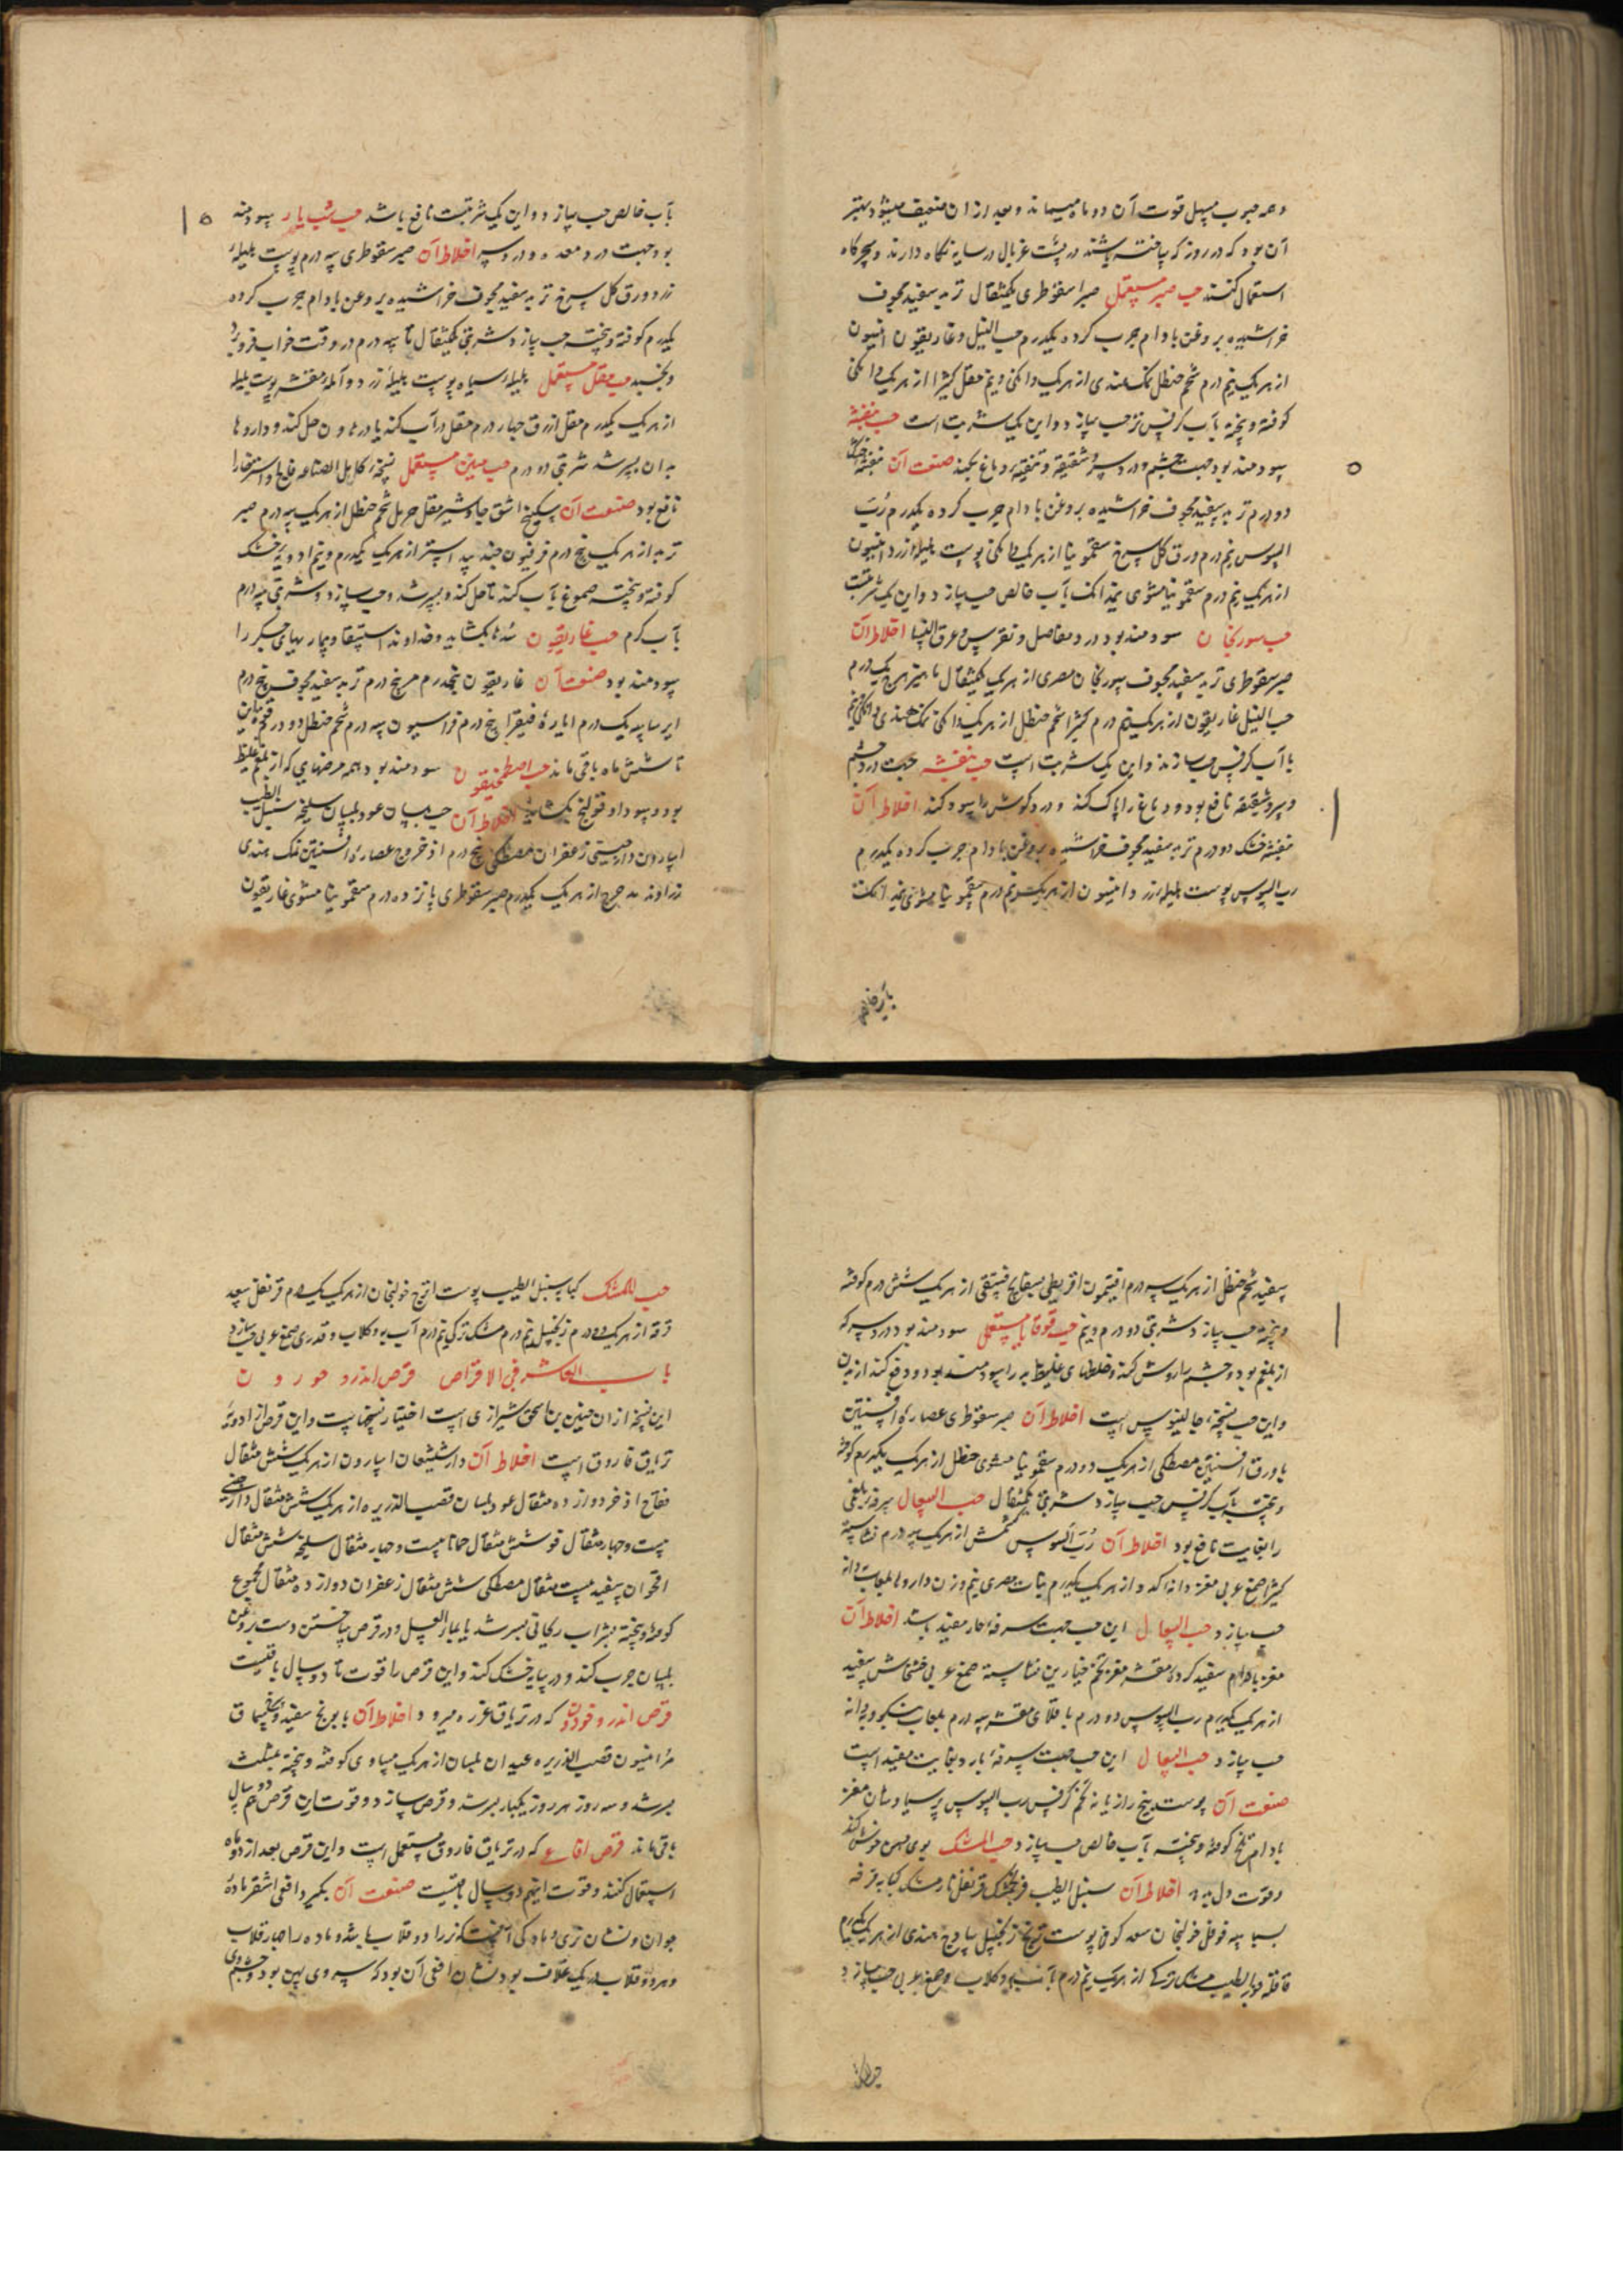 و همه حبوب مسهل قوت آن دو ماه میماند و بعد از آن ضعیف میشود بهتر
آن بود که در روز که ساخته باشند در پشت غربال در سایه نگاه دارند و سحرگاه
استعمال کنند حب صبر مستعمل صبر اسقوطری یکمثقال تربد سفید مجوف
خراشیده بروغن بادام چرب کرده یکدرم حب النیل و غاریقون انیسون
از هر یک نیم درم شحم حنظل نمک هندی از هر یک دانکی و نیم مقل کثیرا از هر یک دانکی
کوفته و پخته بآب کرفس تر حب سازد و این یک شربت است حب بنفشه
سودمند بود جهت چشم و درد سر و شقیقه و تنقیه دماغ بکند صنعت آن بنفشه خشک
دو درم تربد سفید مجوف خراشیده بروغن بادام چرب کرده یکدرم رب
السوس نیم درم ورق کل سرخ سقمونیا از هر یک دانکی پوست هلیله زرد انیسون
از هر یک نیم درم سقمونیا مشوی نیم دانک بآب خالص حب سازد و این یک شربتست
حب سورنجان سودمند بود درد مفاصل و نقرس و عرق النسا اخلاط آن
صبر سقوطری تربد سفید مجوف سورنجان مصری از هر یک یکمثقال یک درم
حب النیل غاریقون از هر یک نیم درم کثیرا شحم حنظل از هر یک دانکی نمک هندی دانکی و نیم
با آب کرفس حب سازند و این یک شربت است حب بنفشه جهت درد چشم
و سر و شقیقه نافع بود و دماغ را پاک کند و درد کوش را سود کند اخلاط آن
بنفشه خشک دو درم تربد سفید مجوف خراشیده بروغن بادام چرب کرده یکدرم
رب السوس پوست هلیله زرد و انیسون از هر یک نیم درم سقمونیا مشوی نیم دانک
بآب خالص
بآب خالص حب سازد و این یک شربتست نافع باشد حب شب یار سودمند
بود جهت درد معده و درد سر اخلاط آن صبر سقوطری سه درم پوست هلیله
زرد ورق کل سرخ تربد سفید مجوف خراشیده بروغن بادام چرب کرده
یکدرم کوفته و پخته حب سازد شربتی یکمثقال تا سه درم در وقت خواب فرو برد
و بخسبد حب مقل مستعمل هلیله سیاه پوست هلیله زرد و آمله مقشر پوست بلیله
از هر یک یکدرم مقل ازرق چهار درم مقل در آب کند یا در هاون حل کند و داروها
بدان بسرشد شربتی دو درم حب منتن مستعمل نسخه کامل الصناعه فالج و استرخا را
نافع بود صنعت آن سکبینج اشق جاوشیر مقل حرمل شحم حنظل از هر یک سه درم صبر
تربد از هر یک پنج درم فرفیون جند بیدستر از هر یک یکدرم و نیم ادویه خشک
کوفته و پخته صموغ بآب کند تا حل کند و بسرشد و حب سازد و شربتی سه درم
بآب کرم حب غاریقون سده ها بکشاید و خداوند استسقا و بیماریهای جکر را
سودمند بود صنعت آن غاریقون پنجدرم درم تربد سفید مجوف پنج درم
ایرسا یک درم ایاره فیقرا پنج درم فراسیون سه درم شحم حنظل دو درم قوت این
تا شش ماه باقی ماند حب اصطمخیقون سودمند بود بهمه مرضهایی که از بلغم غلیظ
بود و سودا و قولنج بکشاید اخلاط آن حب بلسان عود بلسان سلیخه سنبل الطیب
اسارون دارچینی زعفران مصطکی پنج درم اذخر عصاره افسنتین نمک هندی
زراوند مدحرج از هر یک یکدرم صبر سقوطری پانزده درم سقمونیا مشوی غاریقون
سفید شحم حنظل از هر یک سه درم افتیمون اقریطی بسفایج فستقی از هر یک شش درم کوفته
و پخته حب سازد شربتی دو درم و نیم حب قوقایا مستعمل سودمند بود درد سر که
از بلغم بود و چشم را روشن کند و خلطهای غلیظ بد را سودمند بود و دفع کند از بدن
و این حب نسخه جالینوس است اخلاط آن صبر سقوطری عصاره افسنتین
یا ورق افسنتین مصطکی از هر یک دو درم سقمونیا مشوی حنظل از هر یک یکدرم کوفته
و پخته بآب کرفس حب سازد شربتی یکمثقال حب السعال سرفه بلغمی
را بغایت نافع بود اخلاط آن رب السوس کشمش از هر یک سه درم نشاسته
کثیرا صمغ عربی مغز دانه کدو از هر یک یکدرم نبات مصری نیم وزن داروها بلعاب بهدانه
حب سازد حب السعال این حب جهت سرفه حار مفید باشد اخلاط آن
مغز بادام سفید کرده مقشر مغز تخم خیارین نشاسته صمغ عربی خشخاش سفید
از هر یک یکدرم رب السوس دو درم باقلای مقشر سه درم بلعاب بهدانه
حب سازد حب السعال این حب جهت سرفه بارد بغایت مفید است
صنعت آن پوست بیخ رازیانه تخم کرفس رب السوس پرسیاوشان مغز
بادام تلخ کوفته و پخته بآب خالص حب سازد حب المشک بوی دهن خوش کند
و قوت دل بدهد اخلاط آن سنبل الطیب فرنجمشک قرنفل نارمشک کبابه قرفه
بسباسه فوفل خولنجان سعد کوفی پوست ترنج زنجبیل ساذج هندی از هر یک یکدرم
قاقله مشک ترکی از هر یک نیم درم بآب به و کلاب و صمغ عربی حب سازد
حب المشک
حب المشک کبابه سنبل الطیب پوست اترج خولنجان از هر یک یک درم قرنفل سعد
قرفه از هر یک درم زنجبیل نیم درم مشک ترکی نیم درم آب به و کلاب و قدری صمغ عربی حب سازد
باب العاشر فی الاقراص قرص اندرو خورون
این نسخه از آن حنین بن اسحق شیرازی است اختیار نسخهاست و این قرص از ادویه
تریاق فاروق است اخلاط آن دارشیشعان اسارون از هر یک شش مثقال
فقاح اذخر دوازده مثقال عود بلسان قصب الذریره از هر یک شش مثقال دارچینی
بیست و چهار مثقال فو شش مثقال حماما بیست و چهار مثقال سلیخه شش مثقال
اقحوان سفید بیست مثقال مصطکی شش مثقال زعفران دوازده مثقال مجموع
کوفته و پخته بشراب ریحانی بسرشد یا بماء العسل و در قرص ساختن دست بروغن
بلسان چرب کند و در سایه خشک کند و این قرص را قوت تا دو سال باقیست
قرص اندروخورون که در تریاق عزره میرود اخلاط آن بابونج سفید
مر انیسون قصب الذریره عیدان بلسان از هر یک مساوی کوفته و پخته بمثلث
بسرشد و سه روز هر روز یکبار بسرشد و قرص سازد و قوت این قرص دو سال
باقی ماند قرص افاعی که در تریاق فاروق مستعمل است و این قرص بعد از دو ماه
استعمال کنند و قوت اینهم دو سال باقیست صنعت آن بگیرد افعی اشقر ماده
جوان و نشان نری و مادکی آنست که نر را دو قلاب باشد و ماده را چهار قلاب
و هر دو قلاب در یک غلاف بود و نشان افعی آن بود که سر وی پهن بود و چشم وی